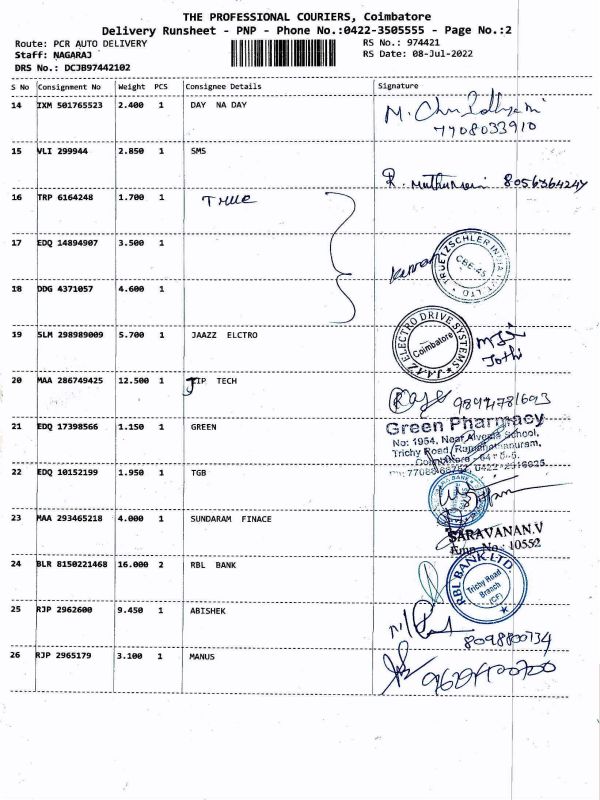 THE PROFESSIONAL COURIERS, Coimbatore
Delivery Runsheet - PNP - Phone No.:0422-3505555 - Page No.:2
Route: PCR AUTO DELIVERY RS No.: 974421
Staff: NAGARAJ RS Date: 08-Jul-2022
DRS No.: DCJB97442102
S No Consignment No Weight PCS Consignee Details Signature
14 IXM 501765523 2.400 1 DAY NA DAY
7708033910
15 VLI 299944 2.850 1 SMS
R.
16 TRP 6164248 1.700 1 True
17 EDQ 14894907 3.500 1
TRUETZSCHLER INDIA PVT. LTD
CBE-45
18 DDG 4371057 4.600 1
19 SLM 298989009 5.700 1 JAAZZ ELCTRO
JAAZ ELECTRO DRIVE SYSTEMS
Coimbatore
Jothi
20 MAA 286749425 12.500 1 JIP TECH
Raja
21 EDQ 17398566 1.150 1 GREEN
Green Pharmacy
No: 1954, Near Alvernia School,
Trichy Road, Ramanathapuram,
22 EDQ 10152199 1.950 1 TGB
23 MAA 293465218 4.000 1 SUNDARAM FINACE
SARAVANAN.V
Emp. No.: 10552
24 BLR 8150221468 16.000 2 RBL BANK
RBL BANK LTD.
Trichy Road
Branch
(CF)
25 RJP 2962600 9.450 1 ABISHEK
8098800134
26 RJP 2965179 3.100 1 MANUS